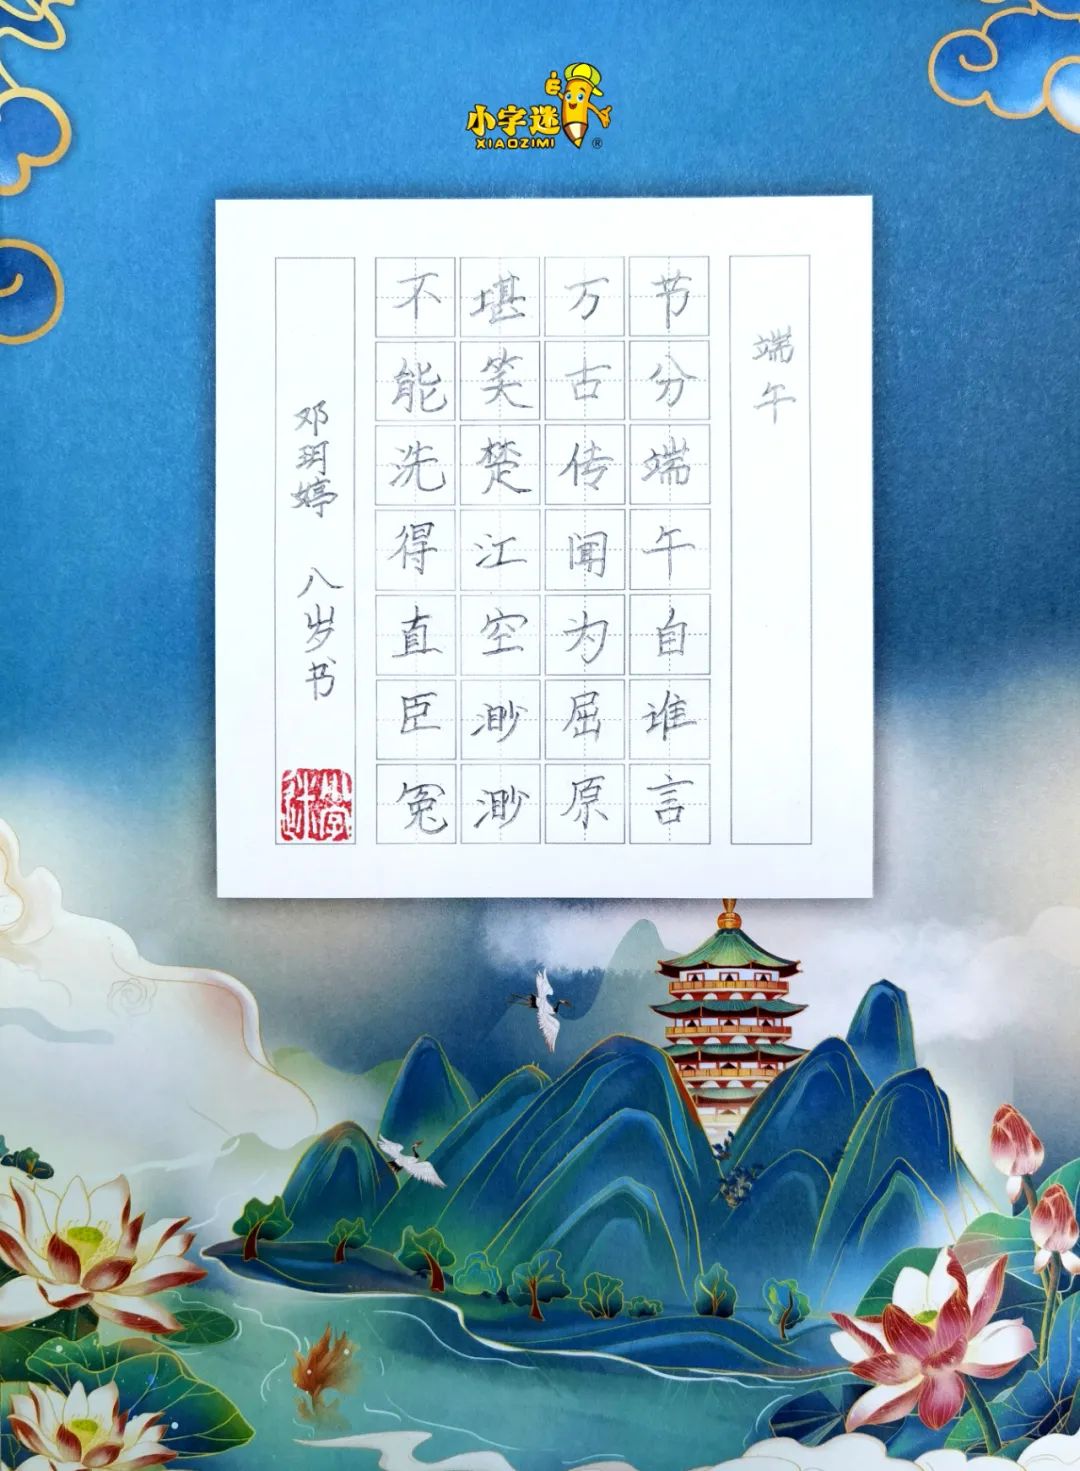 小字迷
XIAOZIMI
®
端午
节分端午自谁言
万古传闻为屈原
堪笑楚江空渺渺
不能洗得直臣冤
邓玥婷 八岁书